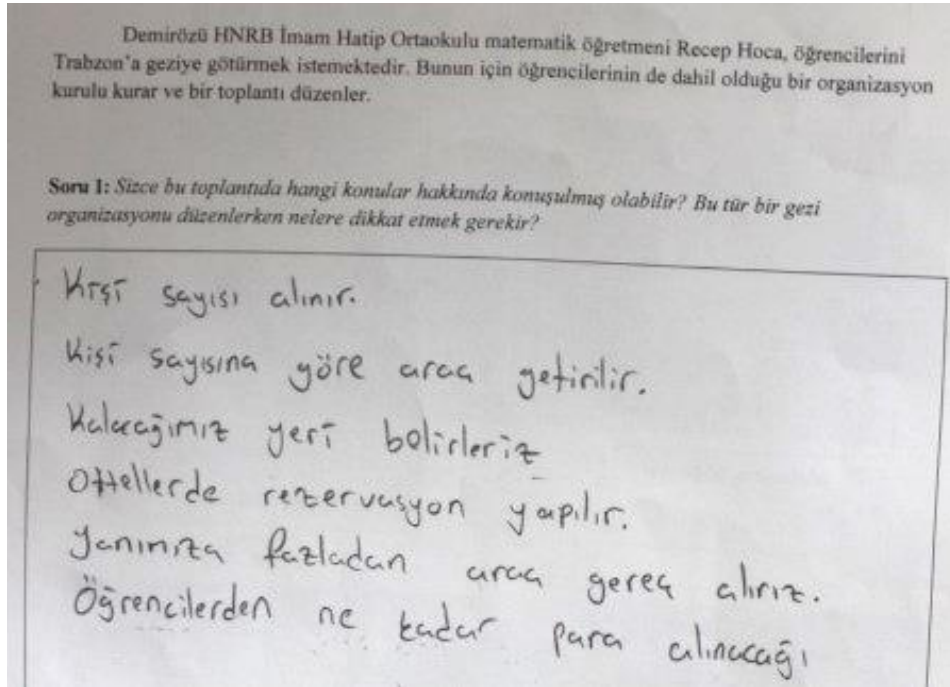 Demirözü HNRB İmam Hatip Ortaokulu matematik öğretmeni Recep Hoca, öğrencilerini
Trabzon'a geziye götürmek istemektedir. Bunun için öğrencilerinin de dahil olduğu bir organizasyon
kurulu kurar ve bir toplantı düzenler.
Soru 1: Sizce bu toplantıda hangi konular hakkında konuşulmuş olabilir? Bu tür bir gezi
organizasyonu düzenlerken nelere dikkat etmek gerekir?
Kişi sayısı alınır.
Kişi sayısına göre araç getirilir.
Kalacağımız yeri belirleriz
Ottellerde rezervasyon yapılır.
Yanımıza fazladan araç gereç alırız.
Öğrencilerden ne kadar para alınacağı